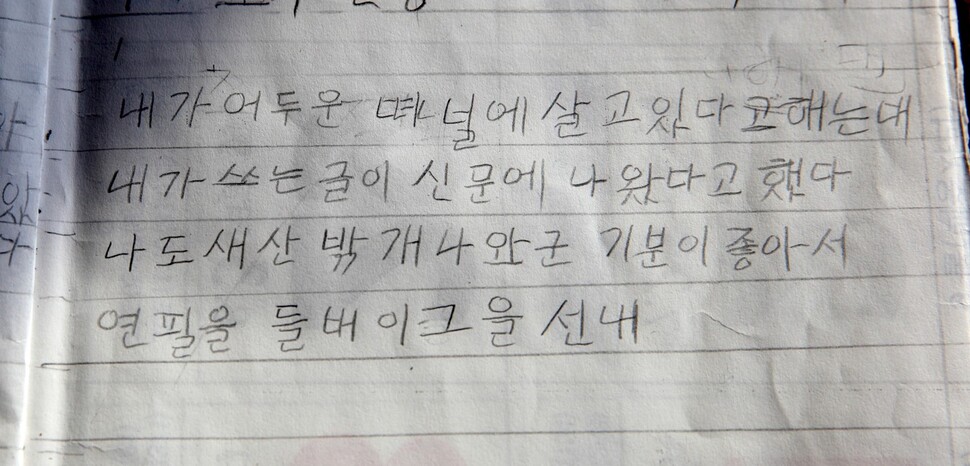 내가 어두운 떠널에 살고있다고해는대
내가 쓰는글이 신문에 나왔다고 했다
나도새산 밖개나와군 기분이좋아서
연필을 들버이그을 선내